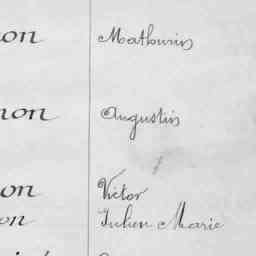 non Mathurin
non Augustin
on Victor
on Julien Marie